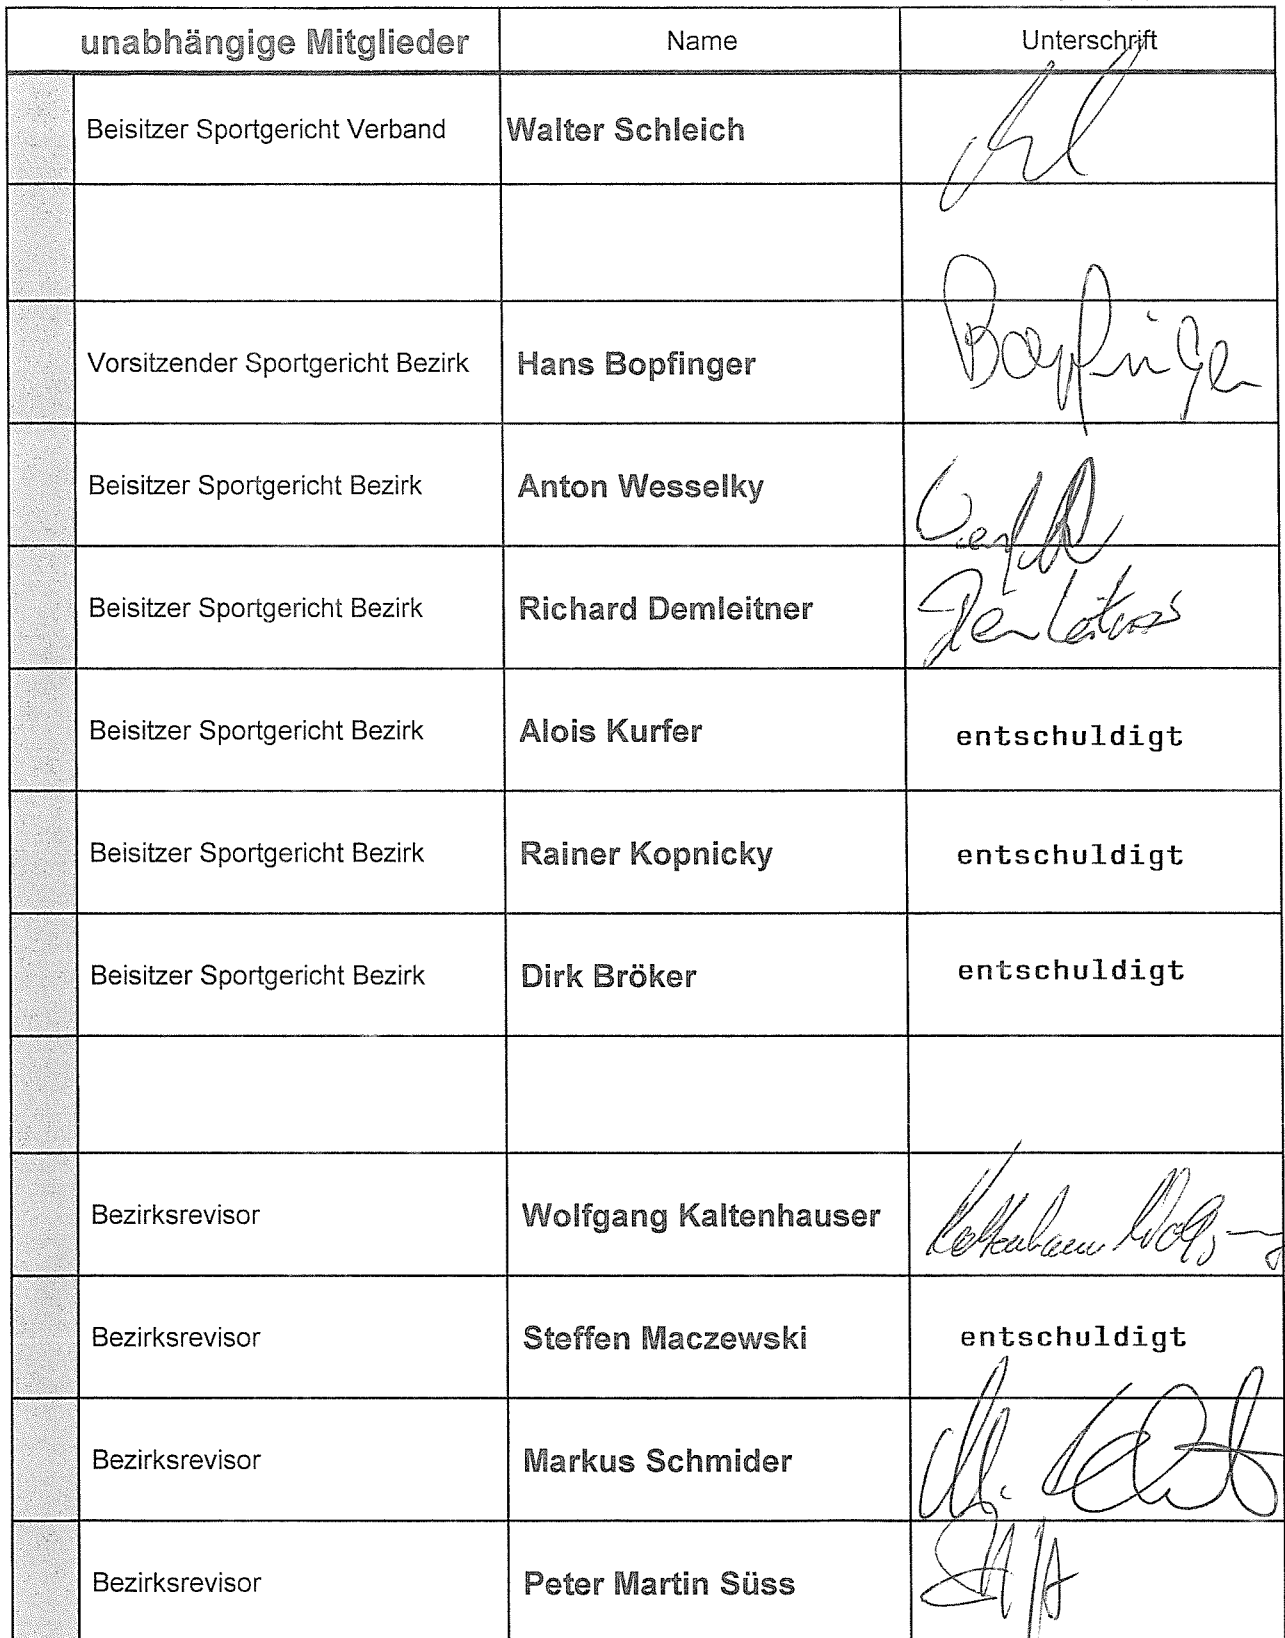 unabhängige Mitglieder Name Unterschrift
Beisitzer Sportgericht Verband Walter Schleich
Vorsitzender Sportgericht Bezirk Hans Bopfinger Bopfinger
Beisitzer Sportgericht Bezirk Anton Wesselky
Beisitzer Sportgericht Bezirk Richard Demleitner
Beisitzer Sportgericht Bezirk Alois Kurfer entschuldigt
Beisitzer Sportgericht Bezirk Rainer Kopnicky entschuldigt
Beisitzer Sportgericht Bezirk Dirk Bröker entschuldigt
Bezirksrevisor Wolfgang Kaltenhauser
Bezirksrevisor Steffen Maczewski entschuldigt
Bezirksrevisor Markus Schmider
Bezirksrevisor Peter Martin Süss